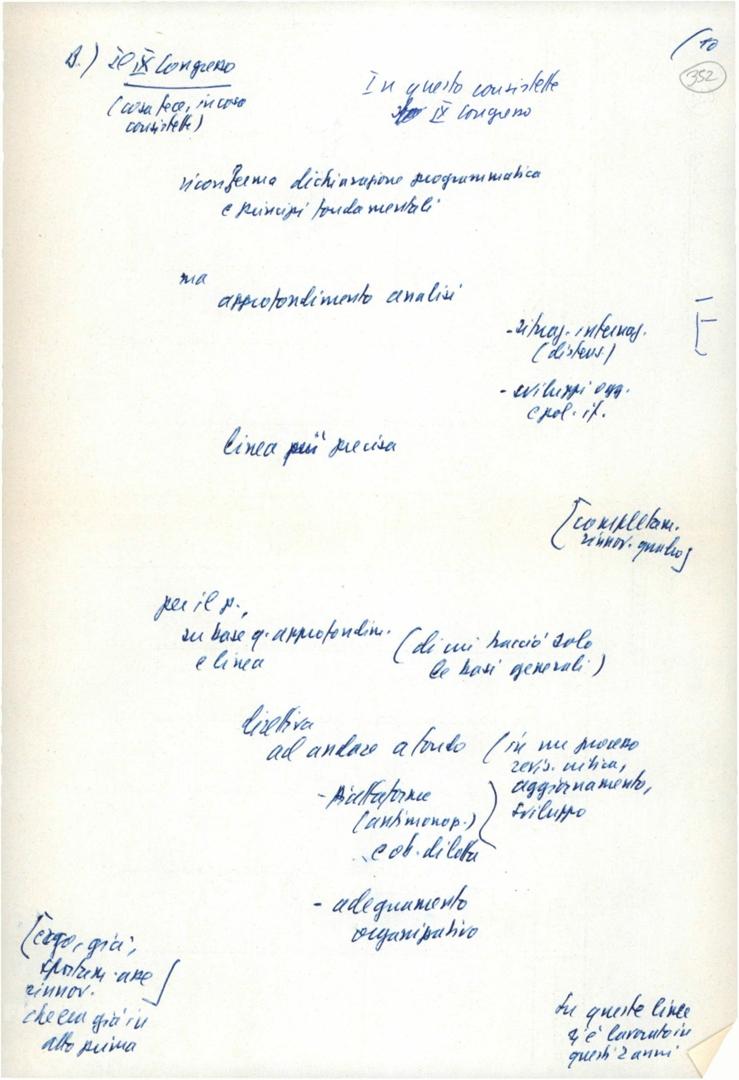 B.) Il IX Congresso
(cosa fece, in cosa
consistette)
(10
352
In questo consistette
IX Congresso
riconferma dichiarazione programmatica
e principi fondamentali
ma
approfondimento analisi
- situaz. internaz.
(distens.)
- sviluppi ogg.
e pol. it.
linea più precisa
[completam.
rinnov. quadro]
per il p.,
su base q. approfondim.
e linea
(di cui tracciò solo
le basi generali)
direttiva
ad andare a fondo
(in un processo
revis. critica,
aggiornamento,
sviluppo
- Piattaforme
(antimonop.)
e ob. di lotta
- adeguamento
organizzativo
[ergo, già,
rinnov.
che era già in
atto prima
Su queste linee
si è lavorato in
questi 2 anni